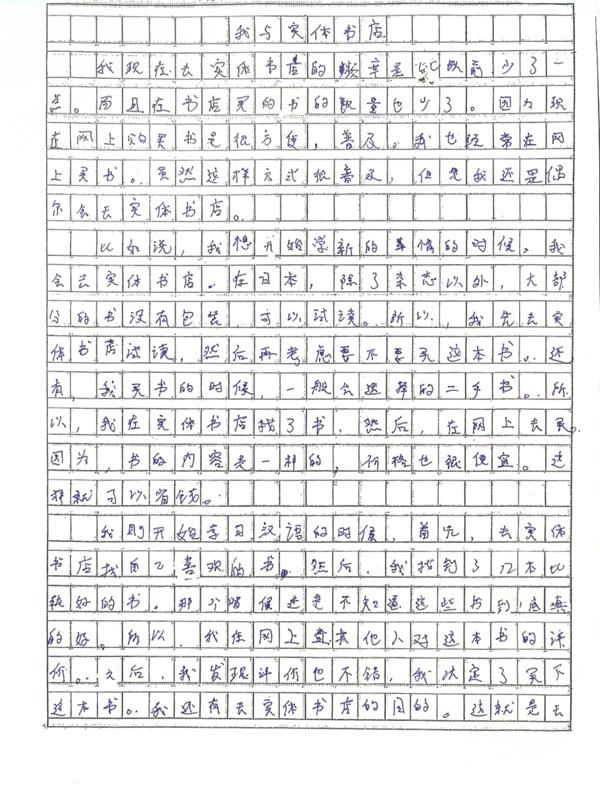 我与实体书店
我现在去实体书店的频率是比以前少了一
点。而且在书店买的书的数量也少了。因为现
在网上购买书是很方便，普及。我也经常在网
上买书。虽然这样方式很普及，但是我还是偶
尔会去实体书店。
比如说，我想开始学新的事情的时候，我
会去实体书店。在日本，除了杂志以外，大部
分的书没有包装，可以试读。所以，我先去实
体书店试读，然后再考虑要不要买这本书。还
有，我买书的时候，一般会选择的二手书。所
以，我在实体书店找了书，然后，在网上去买。
因为，书的内容是一样的，价格也很便宜。这
样就可以省钱。
我刚开始学习汉语的时候，首先，去实体
书店找自己喜欢的书。然后，我找到了几本比
较好的书。那个时候还是不知道这些书到底真
的好。所以，我在网上查其他人对这本书的评
价。之后，我发现评价也不错，我决定了买下
这本书。我还有去实体书店的目的。这就是去